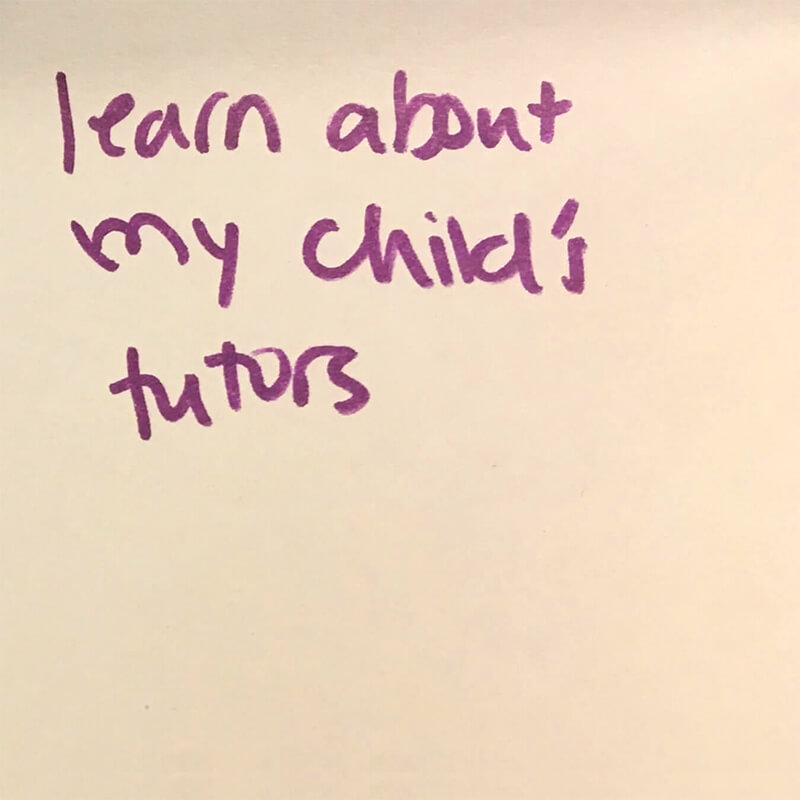 learn about
my child's
tutors